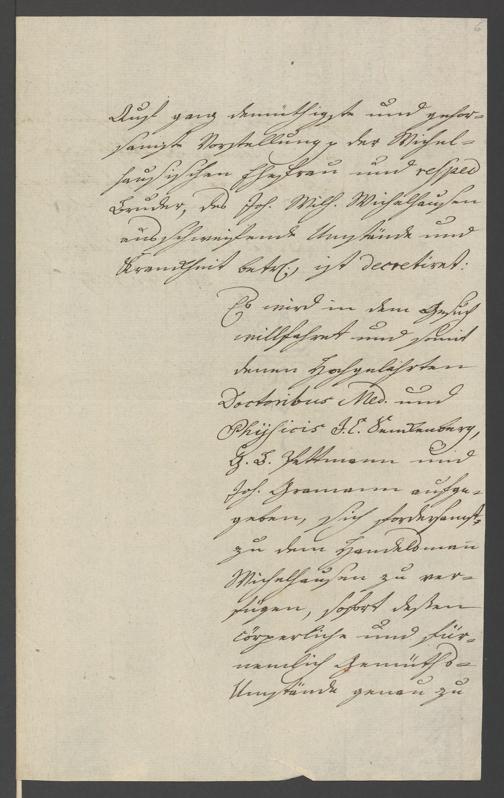 6
Auf ganz demüthigste und gehor-
samste Vorstellung der Michel-
haußischen Ehefrau und respec
Bruder, des Joh. Wilh. Michelhausen
ausschweifende Umstände und
Kranckheit betrl., ist decretiret:
Es wird in dem Gesuch
willfahret und somit
denen Hochgelahrten
Doctoribus Med. und
Physicis J. C. Senckenberg,
Pettmann und
Joh. Gramann aufge-
geben, sich fordersamst
zu dem Handelsmann
Michelhausen zu ver-
fügen, sofort dessen
cörperliche und für-
nemlich Gemüths-
Umstände genau zu